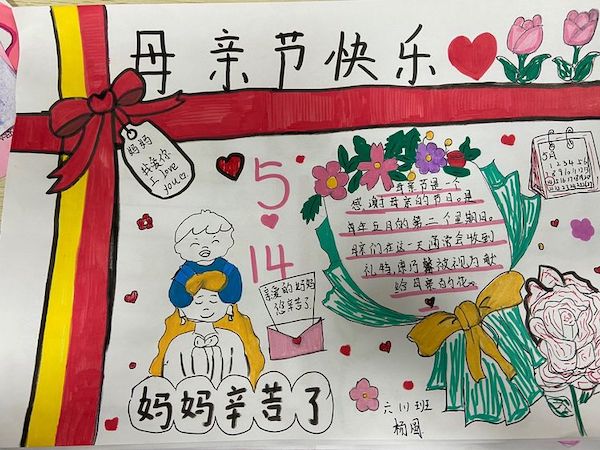 母亲节快乐
妈妈
我爱你
I love
you
5
14
母亲节是一个
感谢母亲的节日。是
每年五月的第二个星期日。
母亲们在这一天通常会收到
礼物 康乃馨被视为献
给母亲的花。
5月
亲爱的妈妈
您辛苦了
妈妈辛苦了
六 班
杨